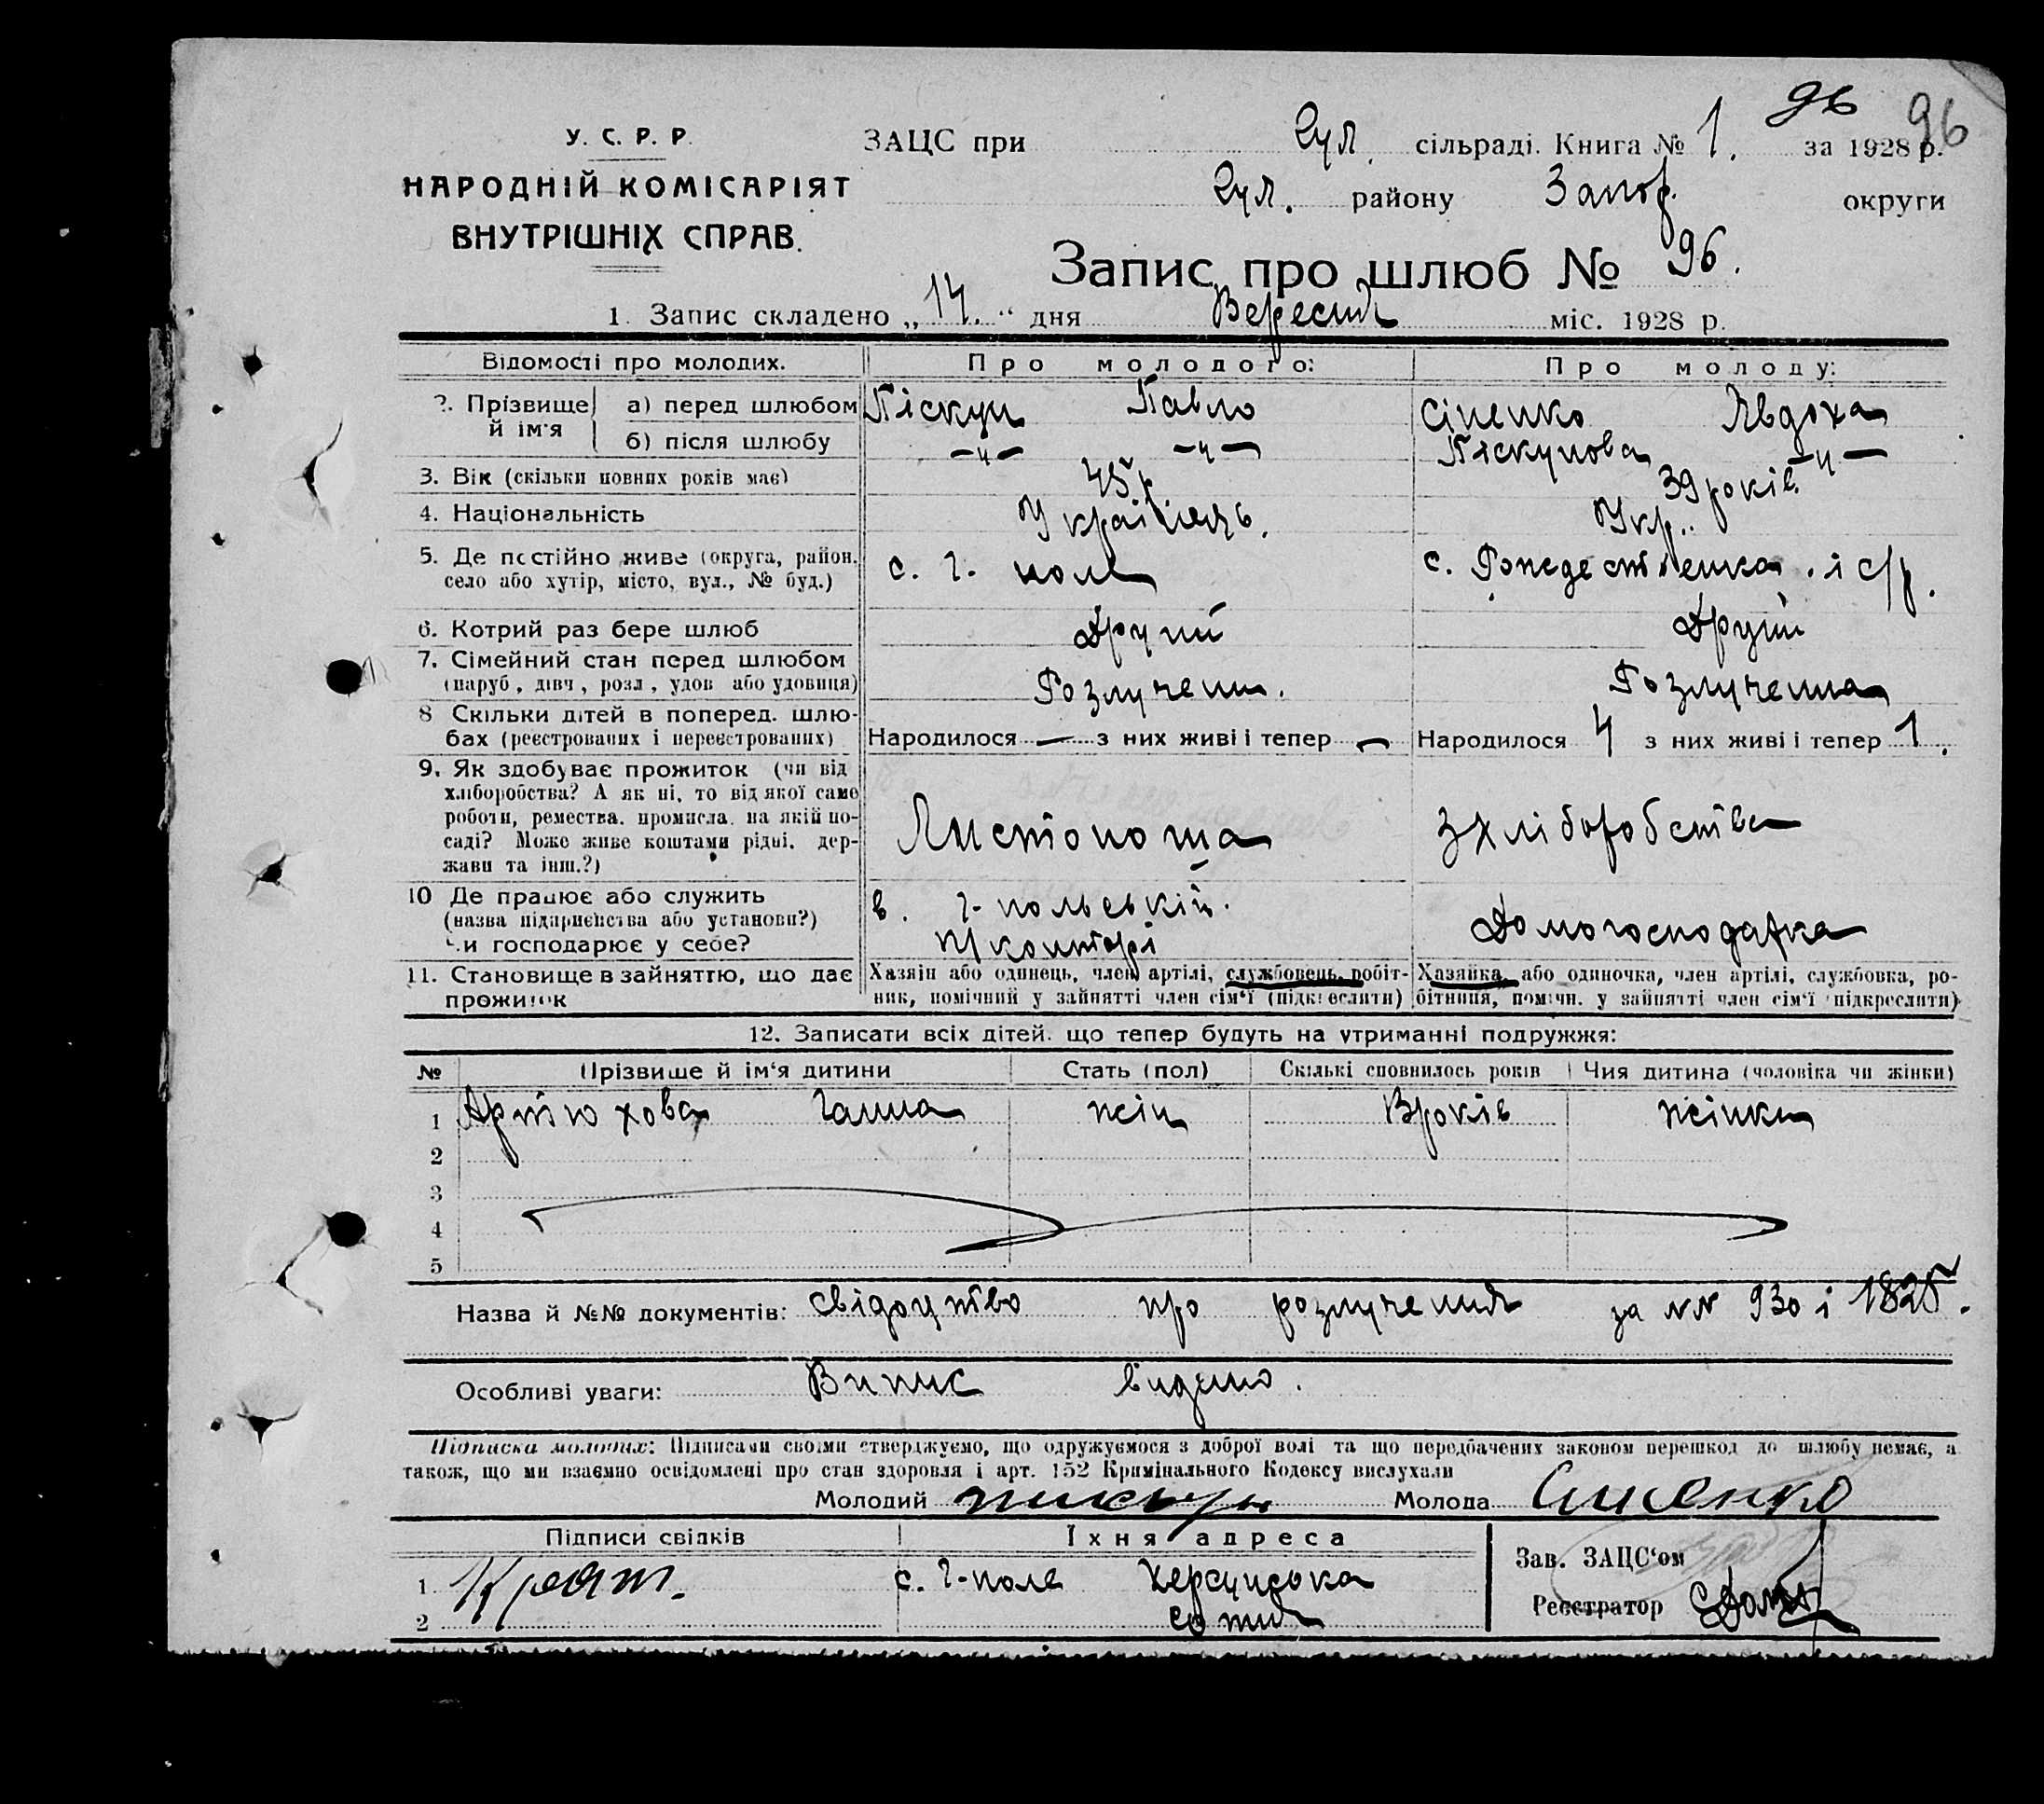 96 96
У. С. Р. Р.
НАРОДНІЙ КОМІСАРІЯТ
ВНУТРІШНІХ СПРАВ.
ЗАЦС при Гул. сільраді. Книга № 1. за 1928 р.
Гул. району Запор. округи
Запис про шлюб № 96.
1. Запис складено „14.“ дня Вересня міс. 1928 р.
Відомості про молодих. Про молодого: Про молоду:
2. Прізвище й ім'я а) перед шлюбом Піскун Павло Сіненко Явдоха
б) після шлюбу —„— —„— Піскунова —„—
3. Вік (скільки повних років має) 45 р. 39 років.
4. Національність Українець. Укр..
5. Де постійно живе (округа, район, с. Г. поле с. Рождественка
село або хутір, місто, вул., № буд.)
6. Котрий раз бере шлюб Другий Другий
7. Сімейний стан перед шлюбом Розлучени. Розлученна
(паруб, дівч, розл, удов або удовиця)
8 Скільки дітей в поперед. шлю-
бах (реєстрованих і нереєстрованих) Народилося — з них живі і тепер — Народилося 4 з них живі і тепер 1.
9. Як здобуває прожиток (чи від
хліборобства? А як ні, то від якої саме
роботи, ремества, промисла, на якій по- Листоноша З хліборобства
саді? Може живе коштами рідні, дер-
жави та інш.?)
10 Де працює або служить в. Г-польській.
(назва підприємства або установи?) п/конторі Домогосподарка
чи господарює у себе?
11. Становище в зайняттю, що дає Хазяїн або одинець, член артілі, службовець, робіт- Хазяйка, або одиночка, член артілі, службовка, ро-
прожиток ник, помічний у зайнятті член сім'ї (підкреслити) бітниця, помічн. у зайнятті член сім'ї (підкреслити)
12. Записати всіх дітей, що тепер будуть на утриманні подружжя:
№ Прізвище й ім'я дитини Стать (пол) Скількі сповнилось років Чия дитина (чоловіка чи жінки)
1 Артюхова Ганна жін років жінки
2
3
4
5
Назва й №№ документів: свідоцтво про розлучення за NN 930 і 1825.
Особливі уваги: Випис видано.
Підписка молодих: Підписами своїми стверджуємо, що одружуємося з доброї волі та що передбачених законом перешкод до шлюбу немає, а
також, що ми взаємно освідомлені про стан здоровля і арт. 152 Кримінального Кодексу вислухали
Молодий пискун Молода Синенко
Підписи свідків Їхня адреса
1 с. Г-поле Херсунська
2 сотня
Зав. ЗАЦС'ом
Реєстратор